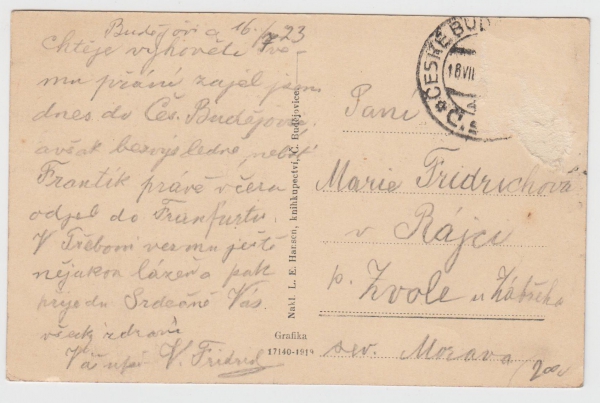 Budějovice 16/7 23
Chtěje vyhověti Tvé-
mu přání zajel jsem
dnes do Čes. Budějovic
avšak bezvýsledně, neboť
Frantík právě včera
odjel do Frankfurtu.
V Třeboni vezmu ještě
nějakou lázeň a pak
přijedu Srdečně Vás
všecky zdraví
Váš V. Fridrich
Nakl. L. E. Hansen, knihkupectví, Č. Budějovice.
Grafika
17140-1919
ČESKÉ BUD
18 VII
Paní
Marie Fridrichová
v Rájci
p. Zvole u Zábřeha
sev. Morava